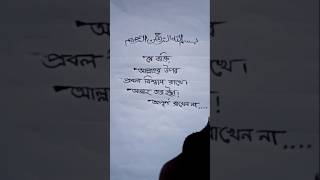 যে ব্যক্তি,
আল্লাহর উপর
প্রবল বিশ্বাস রাখে।
আল্লাহ তার ইচ্ছা
অপূর্ণ রাখেন না....